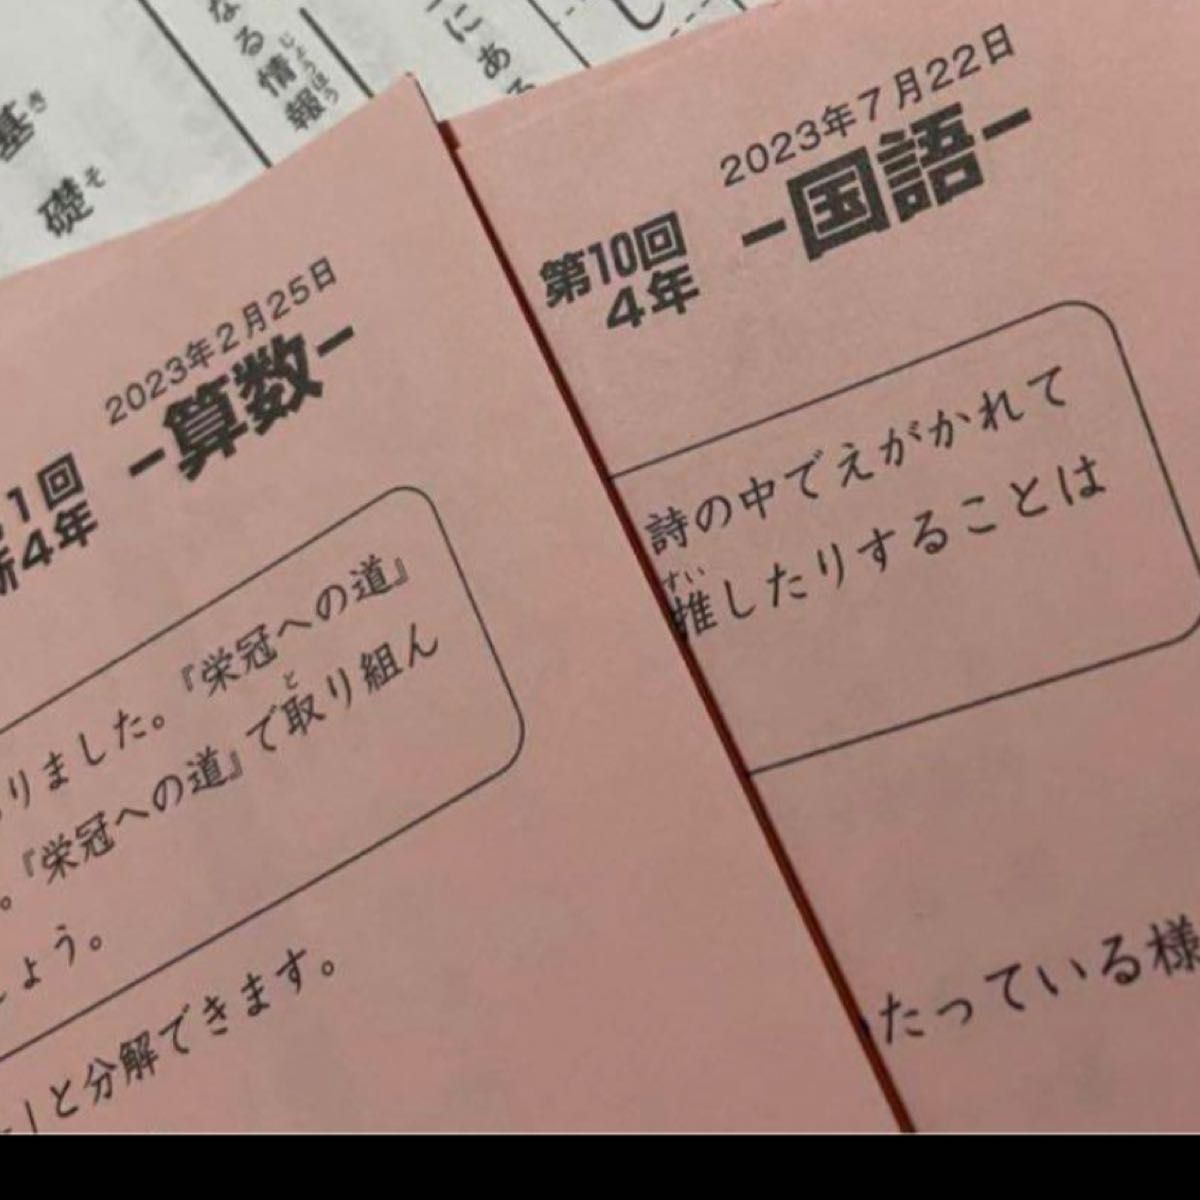 なる情報
じょうほう
にある
基
き
礎
そ
2023年2月25日
-算数-
1回
新4年
りました。『栄冠への道』
。『栄冠への道』で取り組ん
と
しょう。
」と分解できます。
2023年7月22日
-国語-
第10回
4年
詩の中でえがかれて
すい
推したりすることは
たっている様